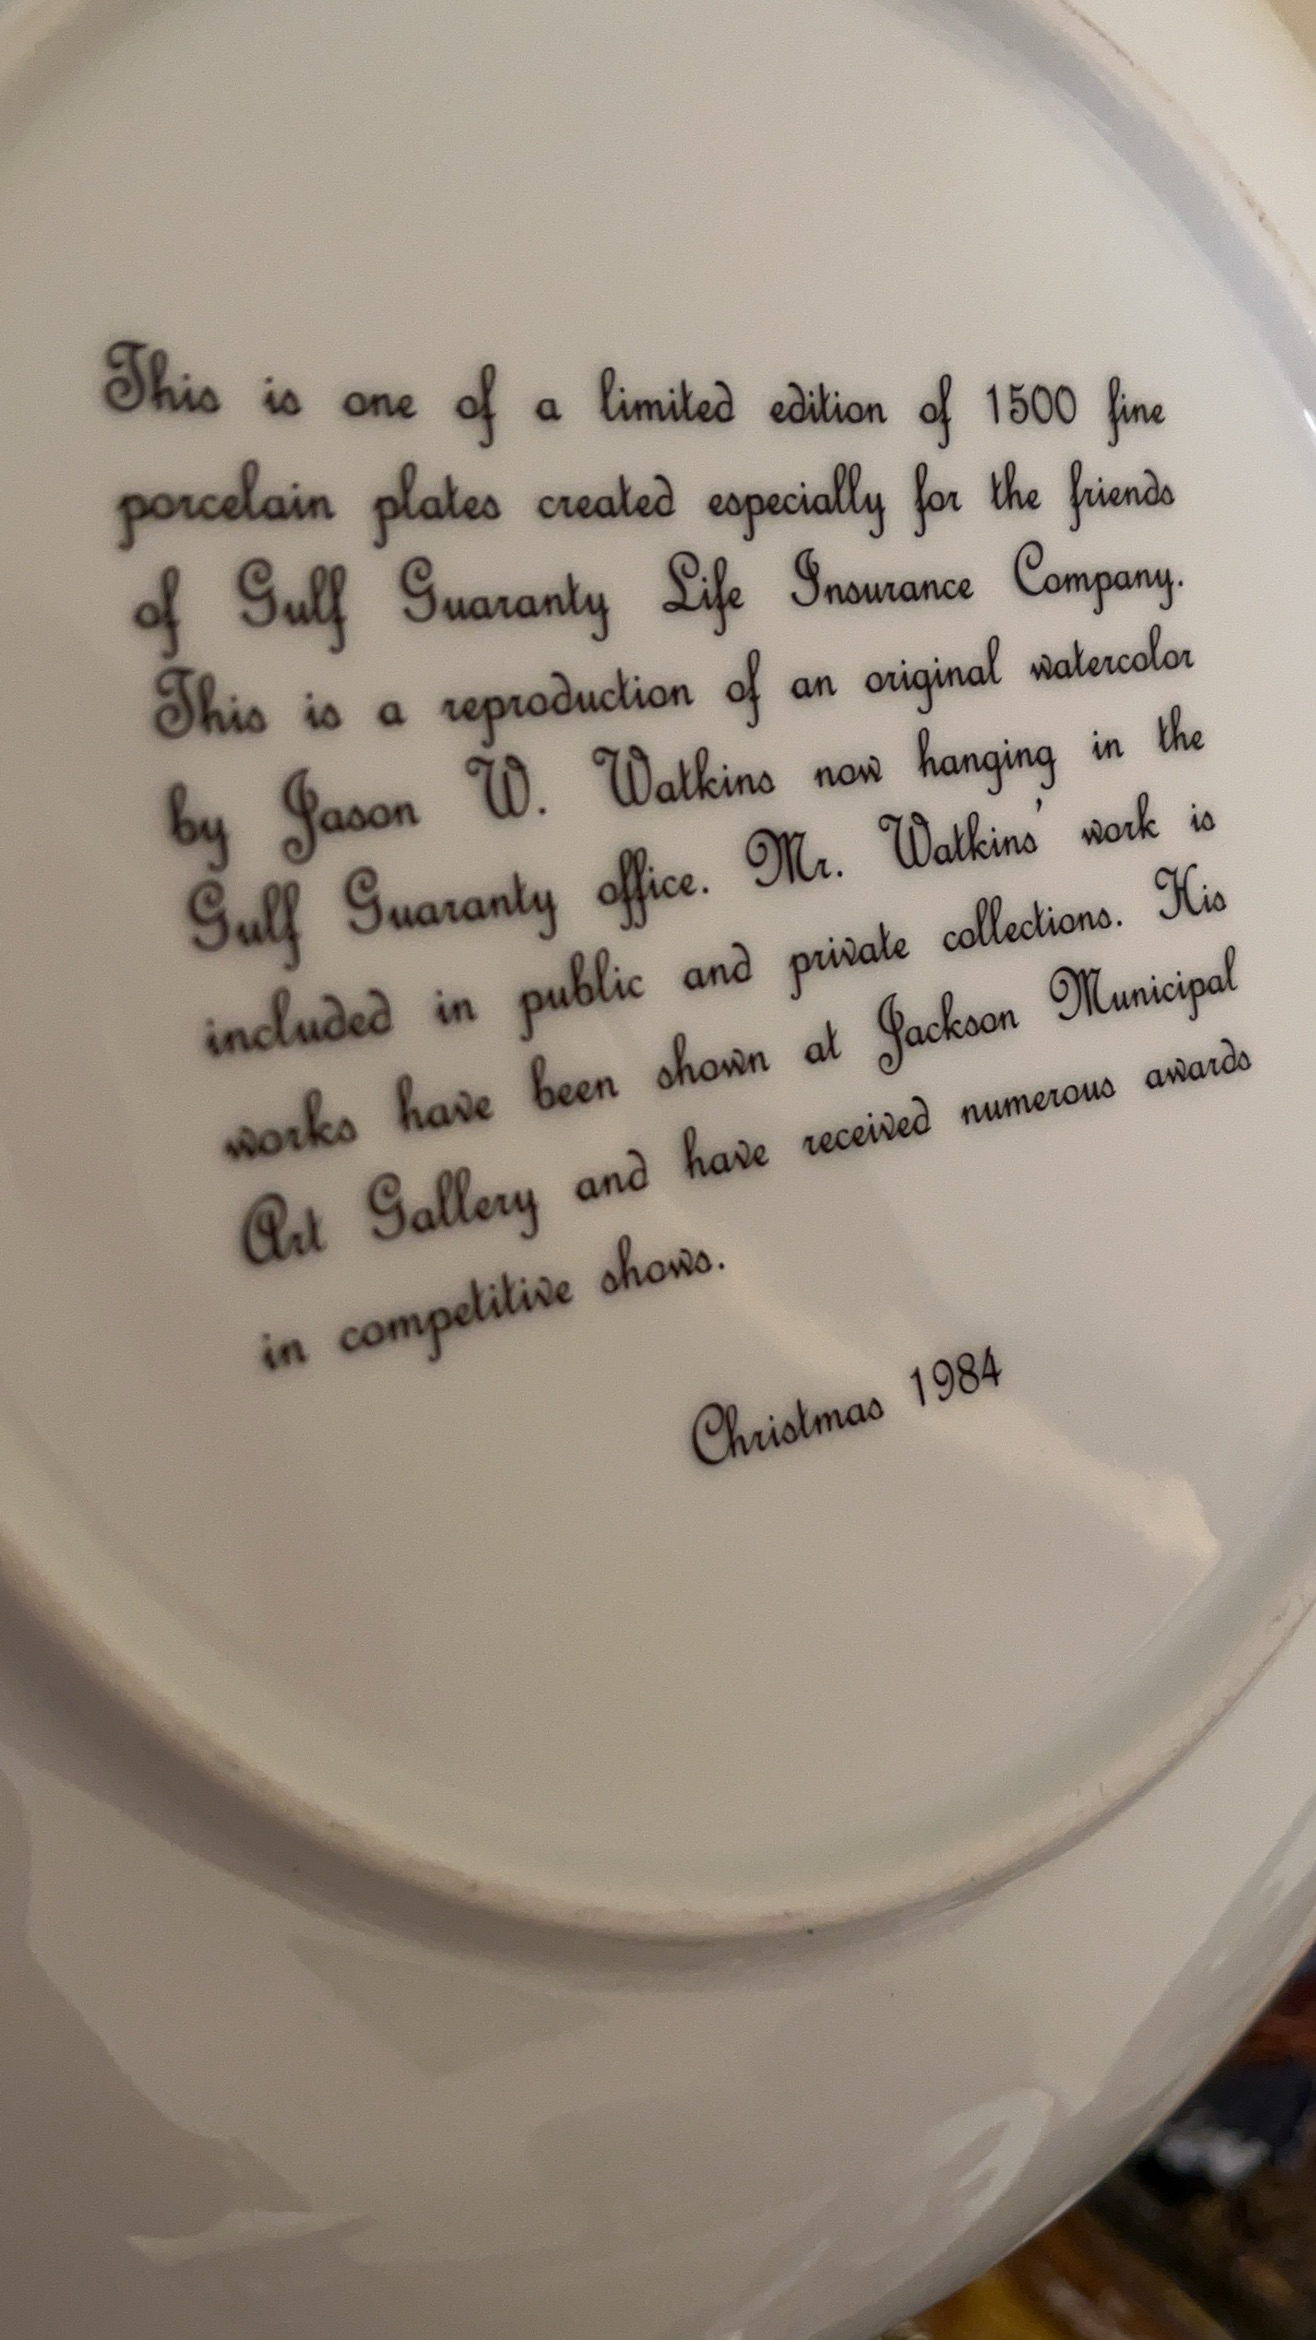 This is one of a limited edition of 1500 fine
porcelain plates created especially for the friends
of Gulf Guaranty Life Insurance Company.
This is a reproduction of an original watercolor
by Jason W. Watkins now hanging in the
Gulf Guaranty office. Mr. Watkins' work is
included in public and private collections. His
works have been shown at Jackson Municipal
Art Gallery and have received numerous awards
in competitive shows.
Christmas 1984